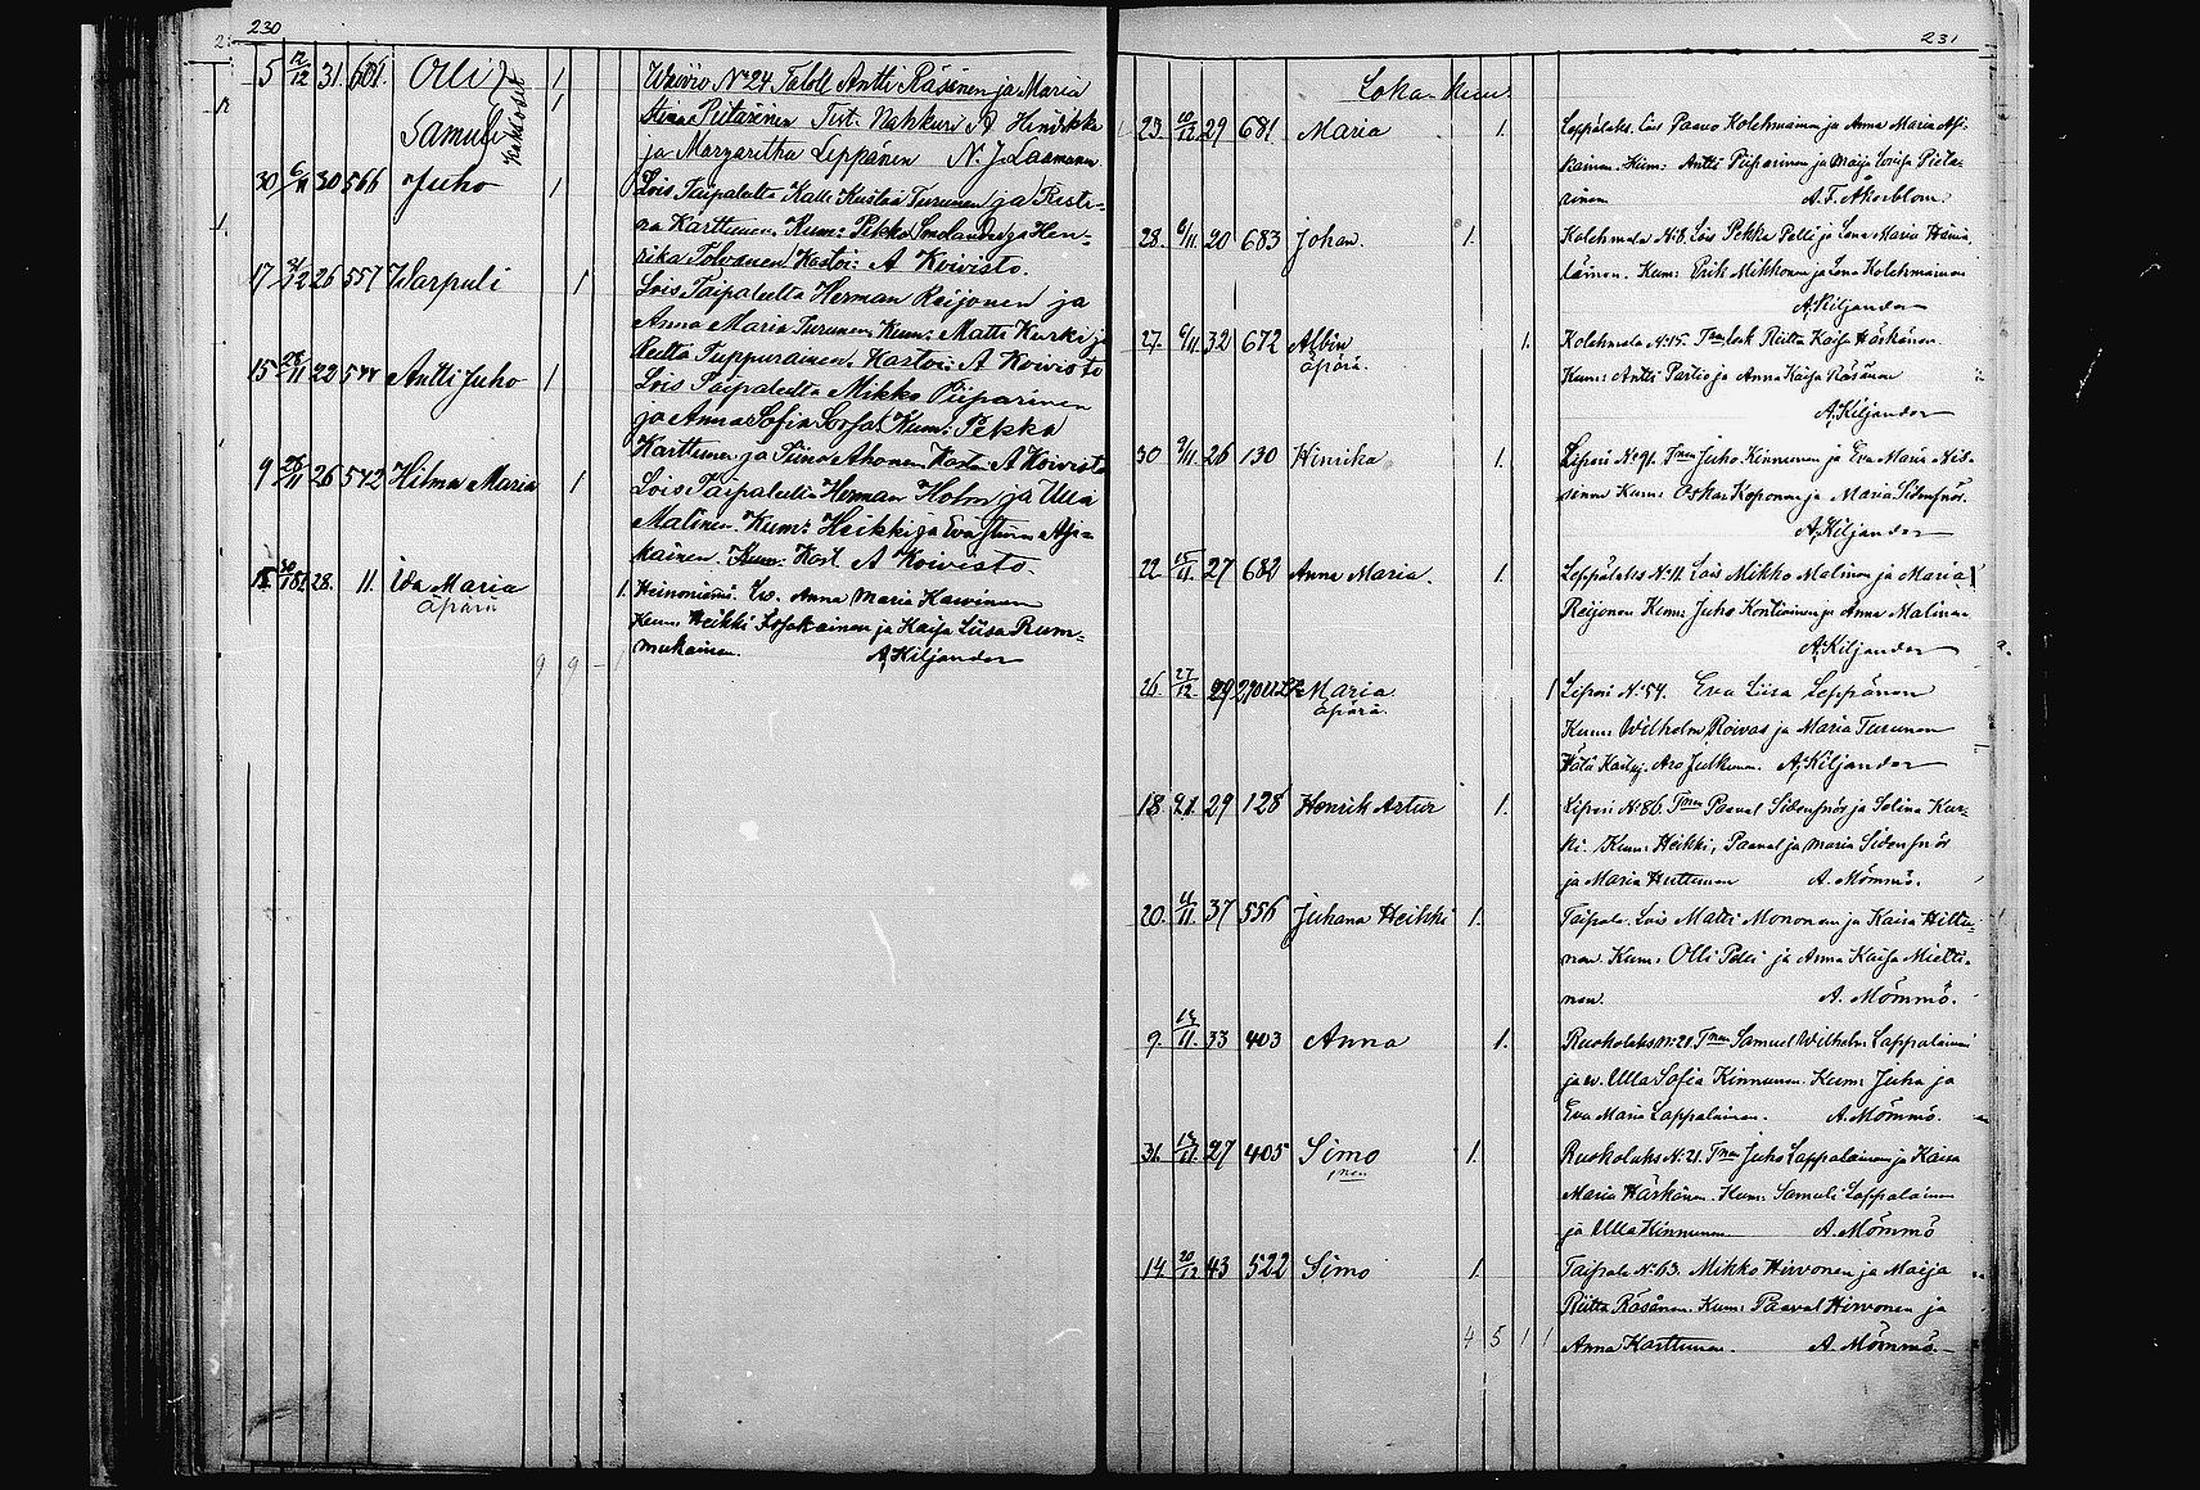 230
5 12/12 31. 601. Olli 1 Waivio No 24 Taloll Antti Räsänen ja Maria
Samuli kaksoset 1 Stiina Pitärinen Tist. Nahkuri A Hendrikka
ja Margaretha Leppänen N. J. Laamanen
30 6/11 30 566 Juho 1 Lois Taipaleelta Kalle Kustaa Turunen ja Risti-
na Karttunen. Kum: Pekka Smolander ja Hen-
rika Tolvanen Kastoi: A Koivisto.
17 26 557 Warpuli 1 Lois Taipaleelta Herman Reijonen ja
Anna Maria Turunen. Kum: Matti Kurki ja
Reitta Tuppurainen. Kastoi: A Koivisto
15 28/11 22 544 Antti Juho 1 Lois Taipaleelta Mikko Piiparinen
ja Anna Sofia Sorsa. Kum: Pekka
Karttunen ja Stina Ahonen Kastoi A Koivisto
9 26/11 26 542 Hilma Maria 1 Lois Taipaleelta Herman Holm ja Ulla
Malinen. Kum: Heikki ja Eva Stiina Asi-
kainen. Kast A Koivisto.
28. 11. Ida Maria 1. Heinoniemi. Anna Maria Karvinen
äpärä Kum: Heikki Issakainen ja Kaisa Liisa Rum-
mukainen. A. Kiljander
9 9 - 1
231
Loka-kuu.
23. 10/12 29 681 Maria 1. Leppälaks. Lois Paavo Kolehmainen ja Anna Maria Asi-
kainen. Kum: Antti Piiparinen ja Maija Lovisa Pieta-
rinen A. F. Åkerblom.
28. 6/11. 20 683 Johan. 1. Kolehmala N:8. Lois Pekka Pelli ja Lena Maria Hämä-
läinen. Kum: Erik Mikkonen ja Lena Kolehmainen
A. Kiljander
27. 6/11. 32 672 Albin 1. Kolehmala N:15. Tmen lesk Riitta Kaisa Härkönen
äpärä. Kum: Antti Partio ja Anna Kaisa Räsänen
A. Kiljander
30 9/11. 26 130 Hinrika 1. Liperi No 91. Tmen Juho Kinnunen ja Eva Maria Mik-
sinen Kum: Oskar Koponen ja Maria Sidensnör.
A. Kiljander
22. 15/11. 27 682 Anna Maria. 1. Leppälaks N:11 Lois Mikko Malinen ja Maria
Reijonen Kum: Juho Kontiainen ja Anna Malinen
A. Kiljander
26. 27/12. 29 Maria 1 Liperi N:54. Eva Liisa Leppänen
äpärä. Kum: Wilhelm Roivas ja Maria Turunen
Hätä Kast. Aro Julkunen. A. Kiljander
18. 29 128 Henrik Artur 1. Liperi N:86. Tmen Paaval Sidensnör ja Selina Kur-
ki. Kum: Heikki, Paaval ja Maria Sidensnör
ja Maria Huttunen A. Mömmö.
20. 37 556 Juhana Heikki 1. Taipale. Lois Matti Mononen ja Kaisa Hiltu-
nen. Kum: Olli Pelli ja Anna Kaisa Mietti-
nen. A. Mömmö.
9. 14/11. 33 403 Anna 1. Ruokolaks N:21 Tmen Samuel Wilhelm Lappalainen
ja w. Ulla Sofia Kinnunen. Kum: Juha ja
Eva Maria Lappalainen. A. Mömmö.
31. 14/11. 27 405 Simo 1. Ruokolaks N:21. Tmen Juho Lappalainen ja Kaisa
1nen Maria Härkönen. Kum: Samuli Lappalainen
ja Ulla Kinnunen A. Mömmö
14. 20/12 43 522 Simo 1. Taipale No 63. Mikko Hirvonen ja Maija
Riitta Räsänen. Kum: Paaval Hirvonen ja
4 5 1 1 Anna Karttunen. A. Mömmö.